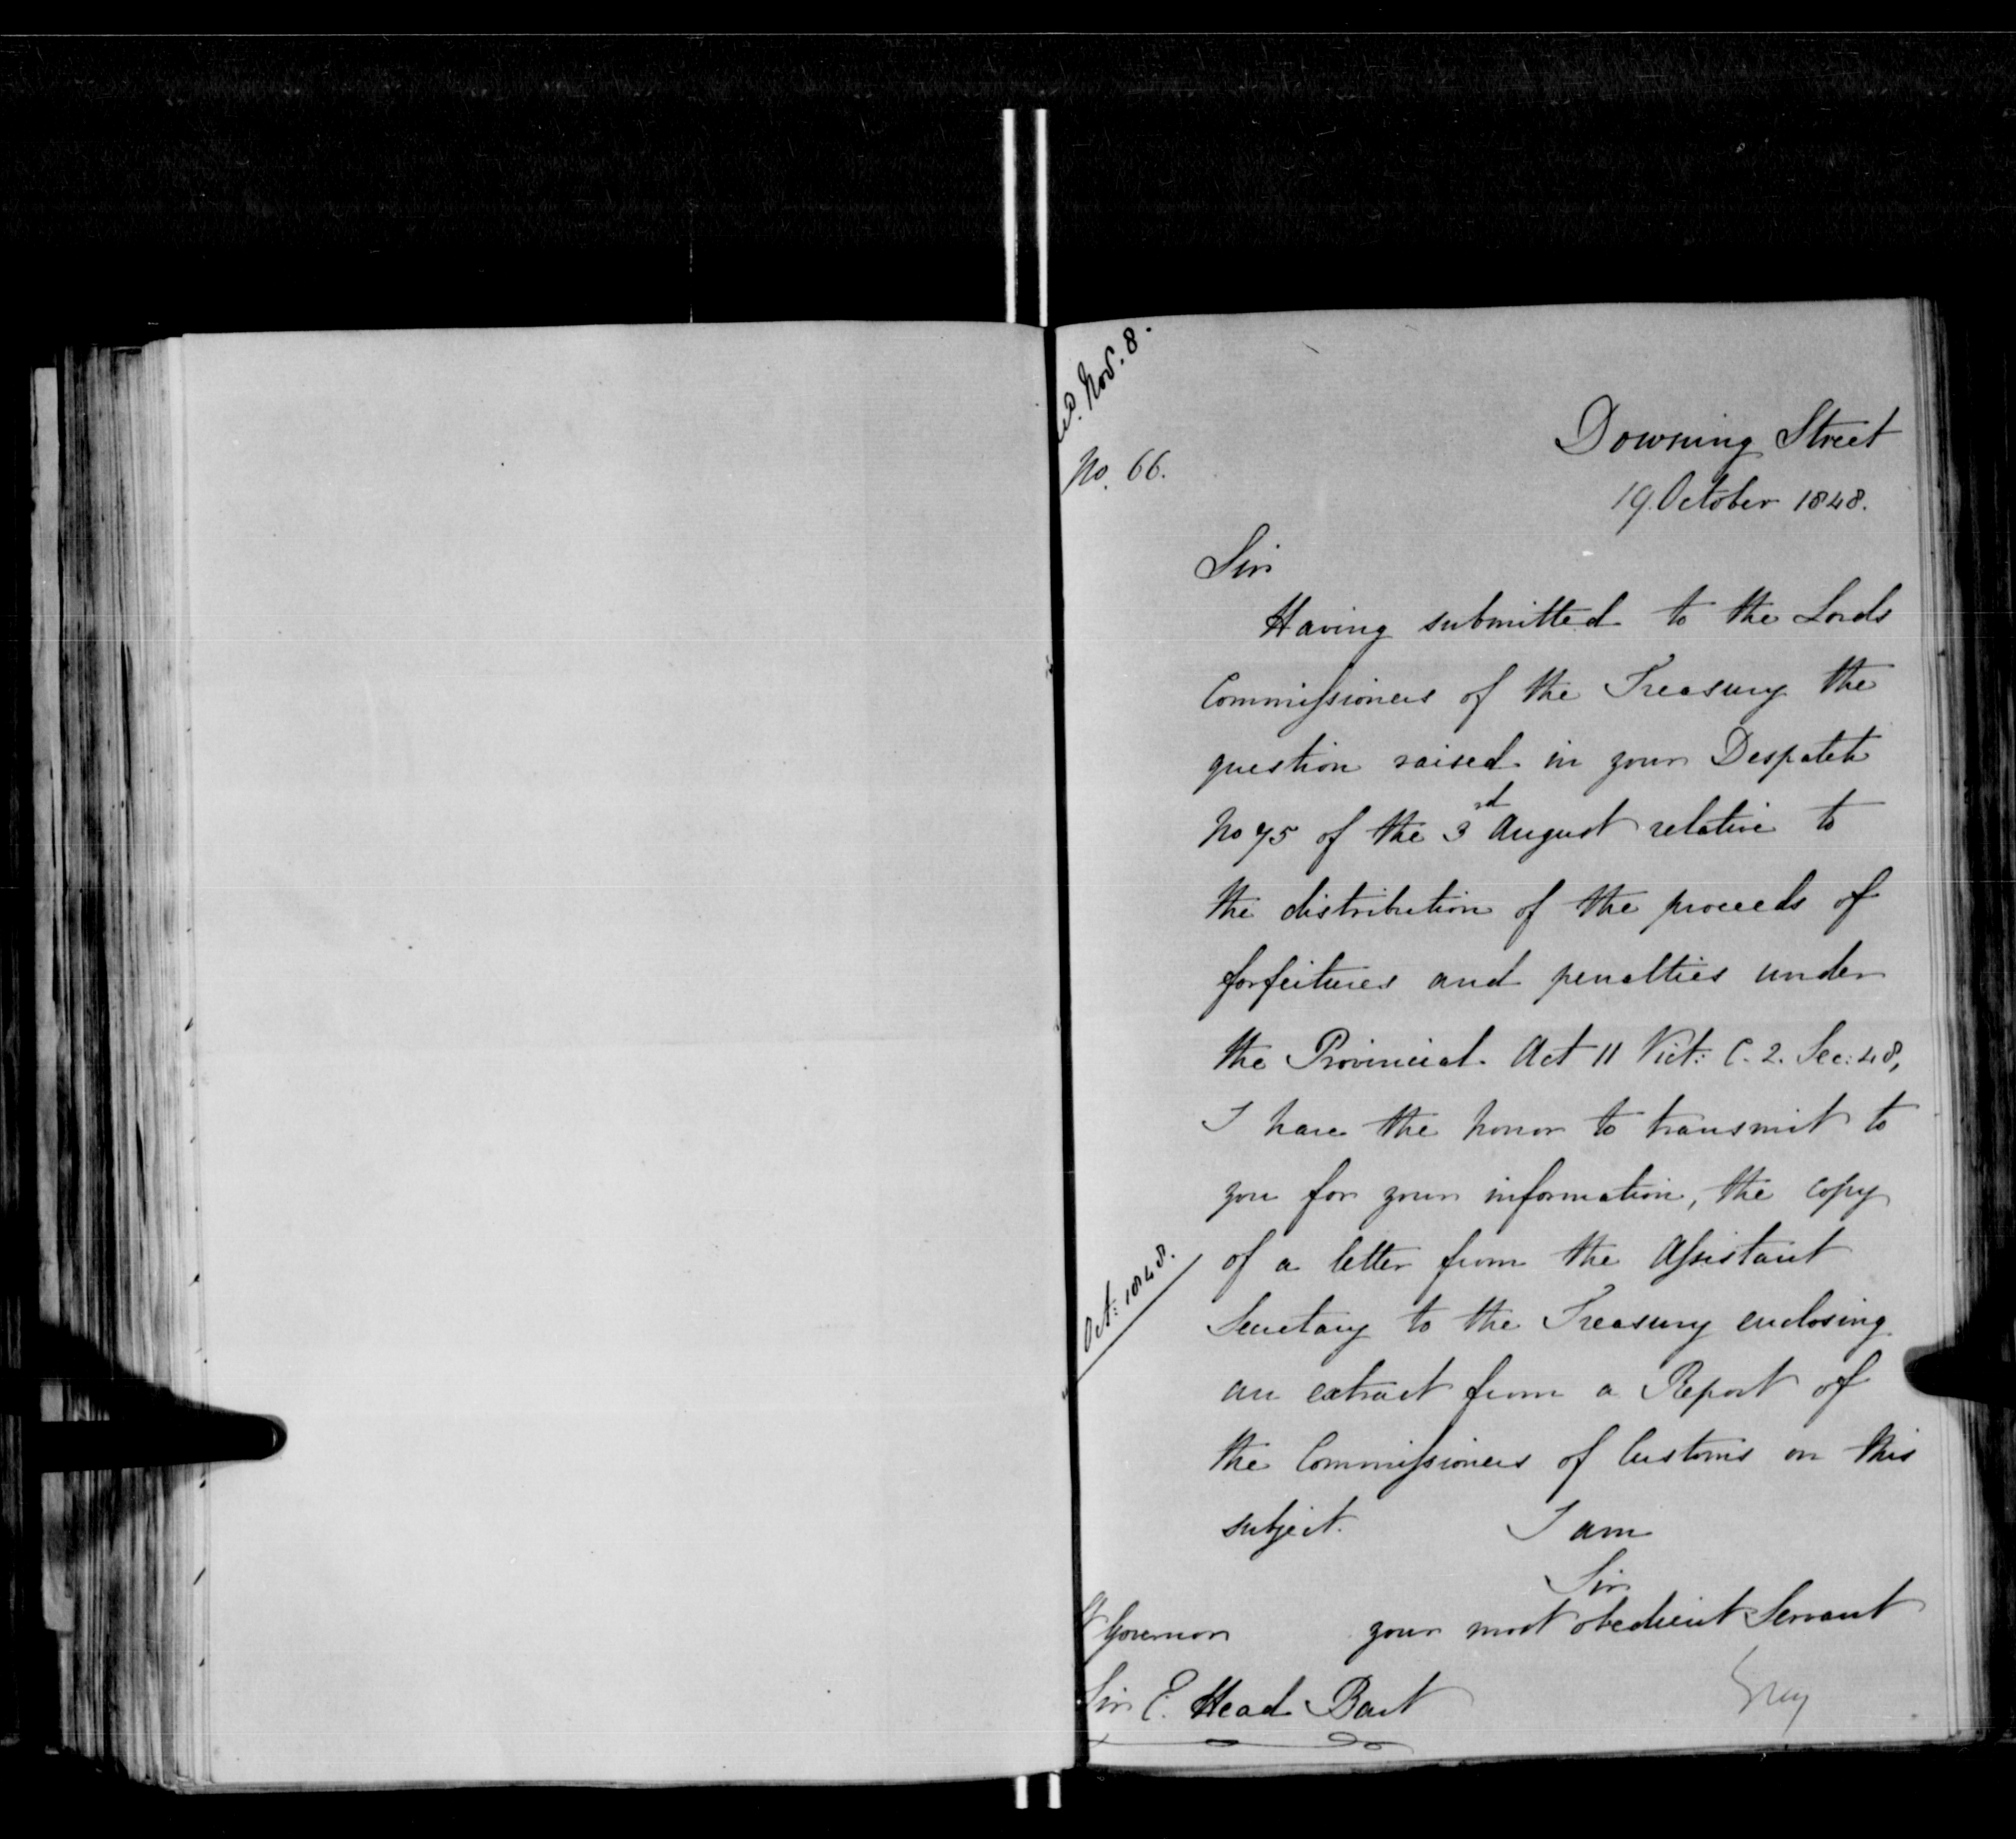 Nov. 8.
No. 66.
Downing Street
19. October 1848.
Sir
Having submitted to the Lords
Commissioners of the Treasury the
question raised in your Despatch
No 75 of the 3rd August relative to
the distribution of the proceeds of
forfeitures and penalties under
the Provincial Act 11 Vict: C. 2. Sec: 48,
I have the honor to transmit to
you for your information, the copy
of a letter from the Assistant
Oct: 1848.
Secretary to the Treasury enclosing
an extract from a Report of
the Commissioners of Customs on this
subject. I am
Sir
your most obedient Servant
Governor
Grey
Sir E. Head Bart